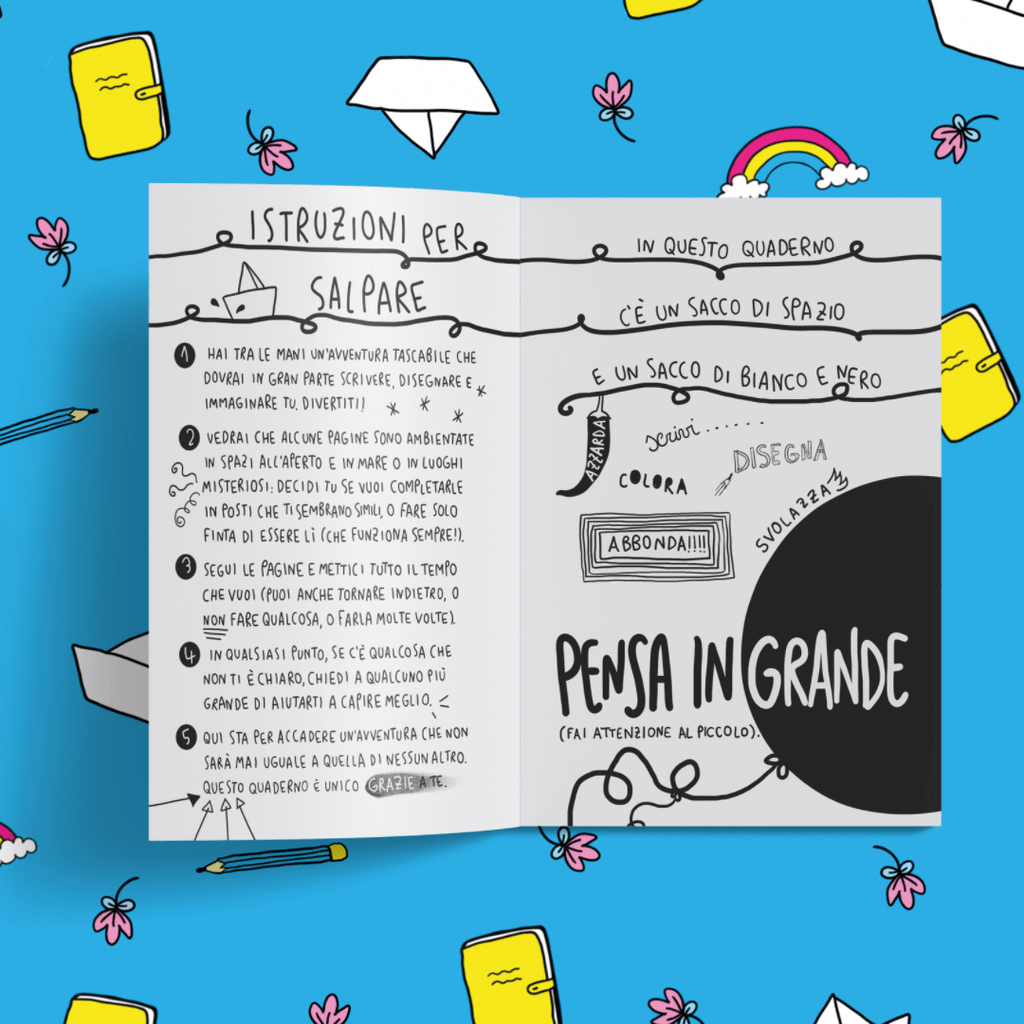 ISTRUZIONI PER
SALPARE
1 HAI TRA LE MANI UN'AVVENTURA TASCABILE CHE
DOVRAI IN GRAN PARTE SCRIVERE, DISEGNARE E
IMMAGINARE TU. DIVERTITI!
2 VEDRAI CHE ALCUNE PAGINE SONO AMBIENTATE
IN SPAZI ALL'APERTO E IN MARE O IN LUOGHI
MISTERIOSI: DECIDI TU SE VUOI COMPLETARLE
IN POSTI CHE TI SEMBRANO SIMILI, O FARE SOLO
FINTA DI ESSERE LÌ (CHE FUNZIONA SEMPRE!).
3 SEGUI LE PAGINE E METTICI TUTTO IL TEMPO
CHE VUOI (PUOI ANCHE TORNARE INDIETRO, O
NON FARE QUALCOSA, O FARLA MOLTE VOLTE).
4 IN QUALSIASI PUNTO, SE C'È QUALCOSA CHE
NON TI È CHIARO, CHIEDI A QUALCUNO PIÙ
GRANDE DI AIUTARTI A CAPIRE MEGLIO.
5 QUI STA PER ACCADERE UN'AVVENTURA CHE NON
SARÀ MAI UGUALE A QUELLA DI NESSUN ALTRO.
QUESTO QUADERNO È UNICO GRAZIE A TE.
IN QUESTO QUADERNO
C'È UN SACCO DI SPAZIO
E UN SACCO DI BIANCO E NERO
AZZARDA
scrivi......
DISEGNA
COLORA
SVOLAZZA
ABBONDA!!!!
PENSA IN GRANDE
(FAI ATTENZIONE AL PICCOLO).